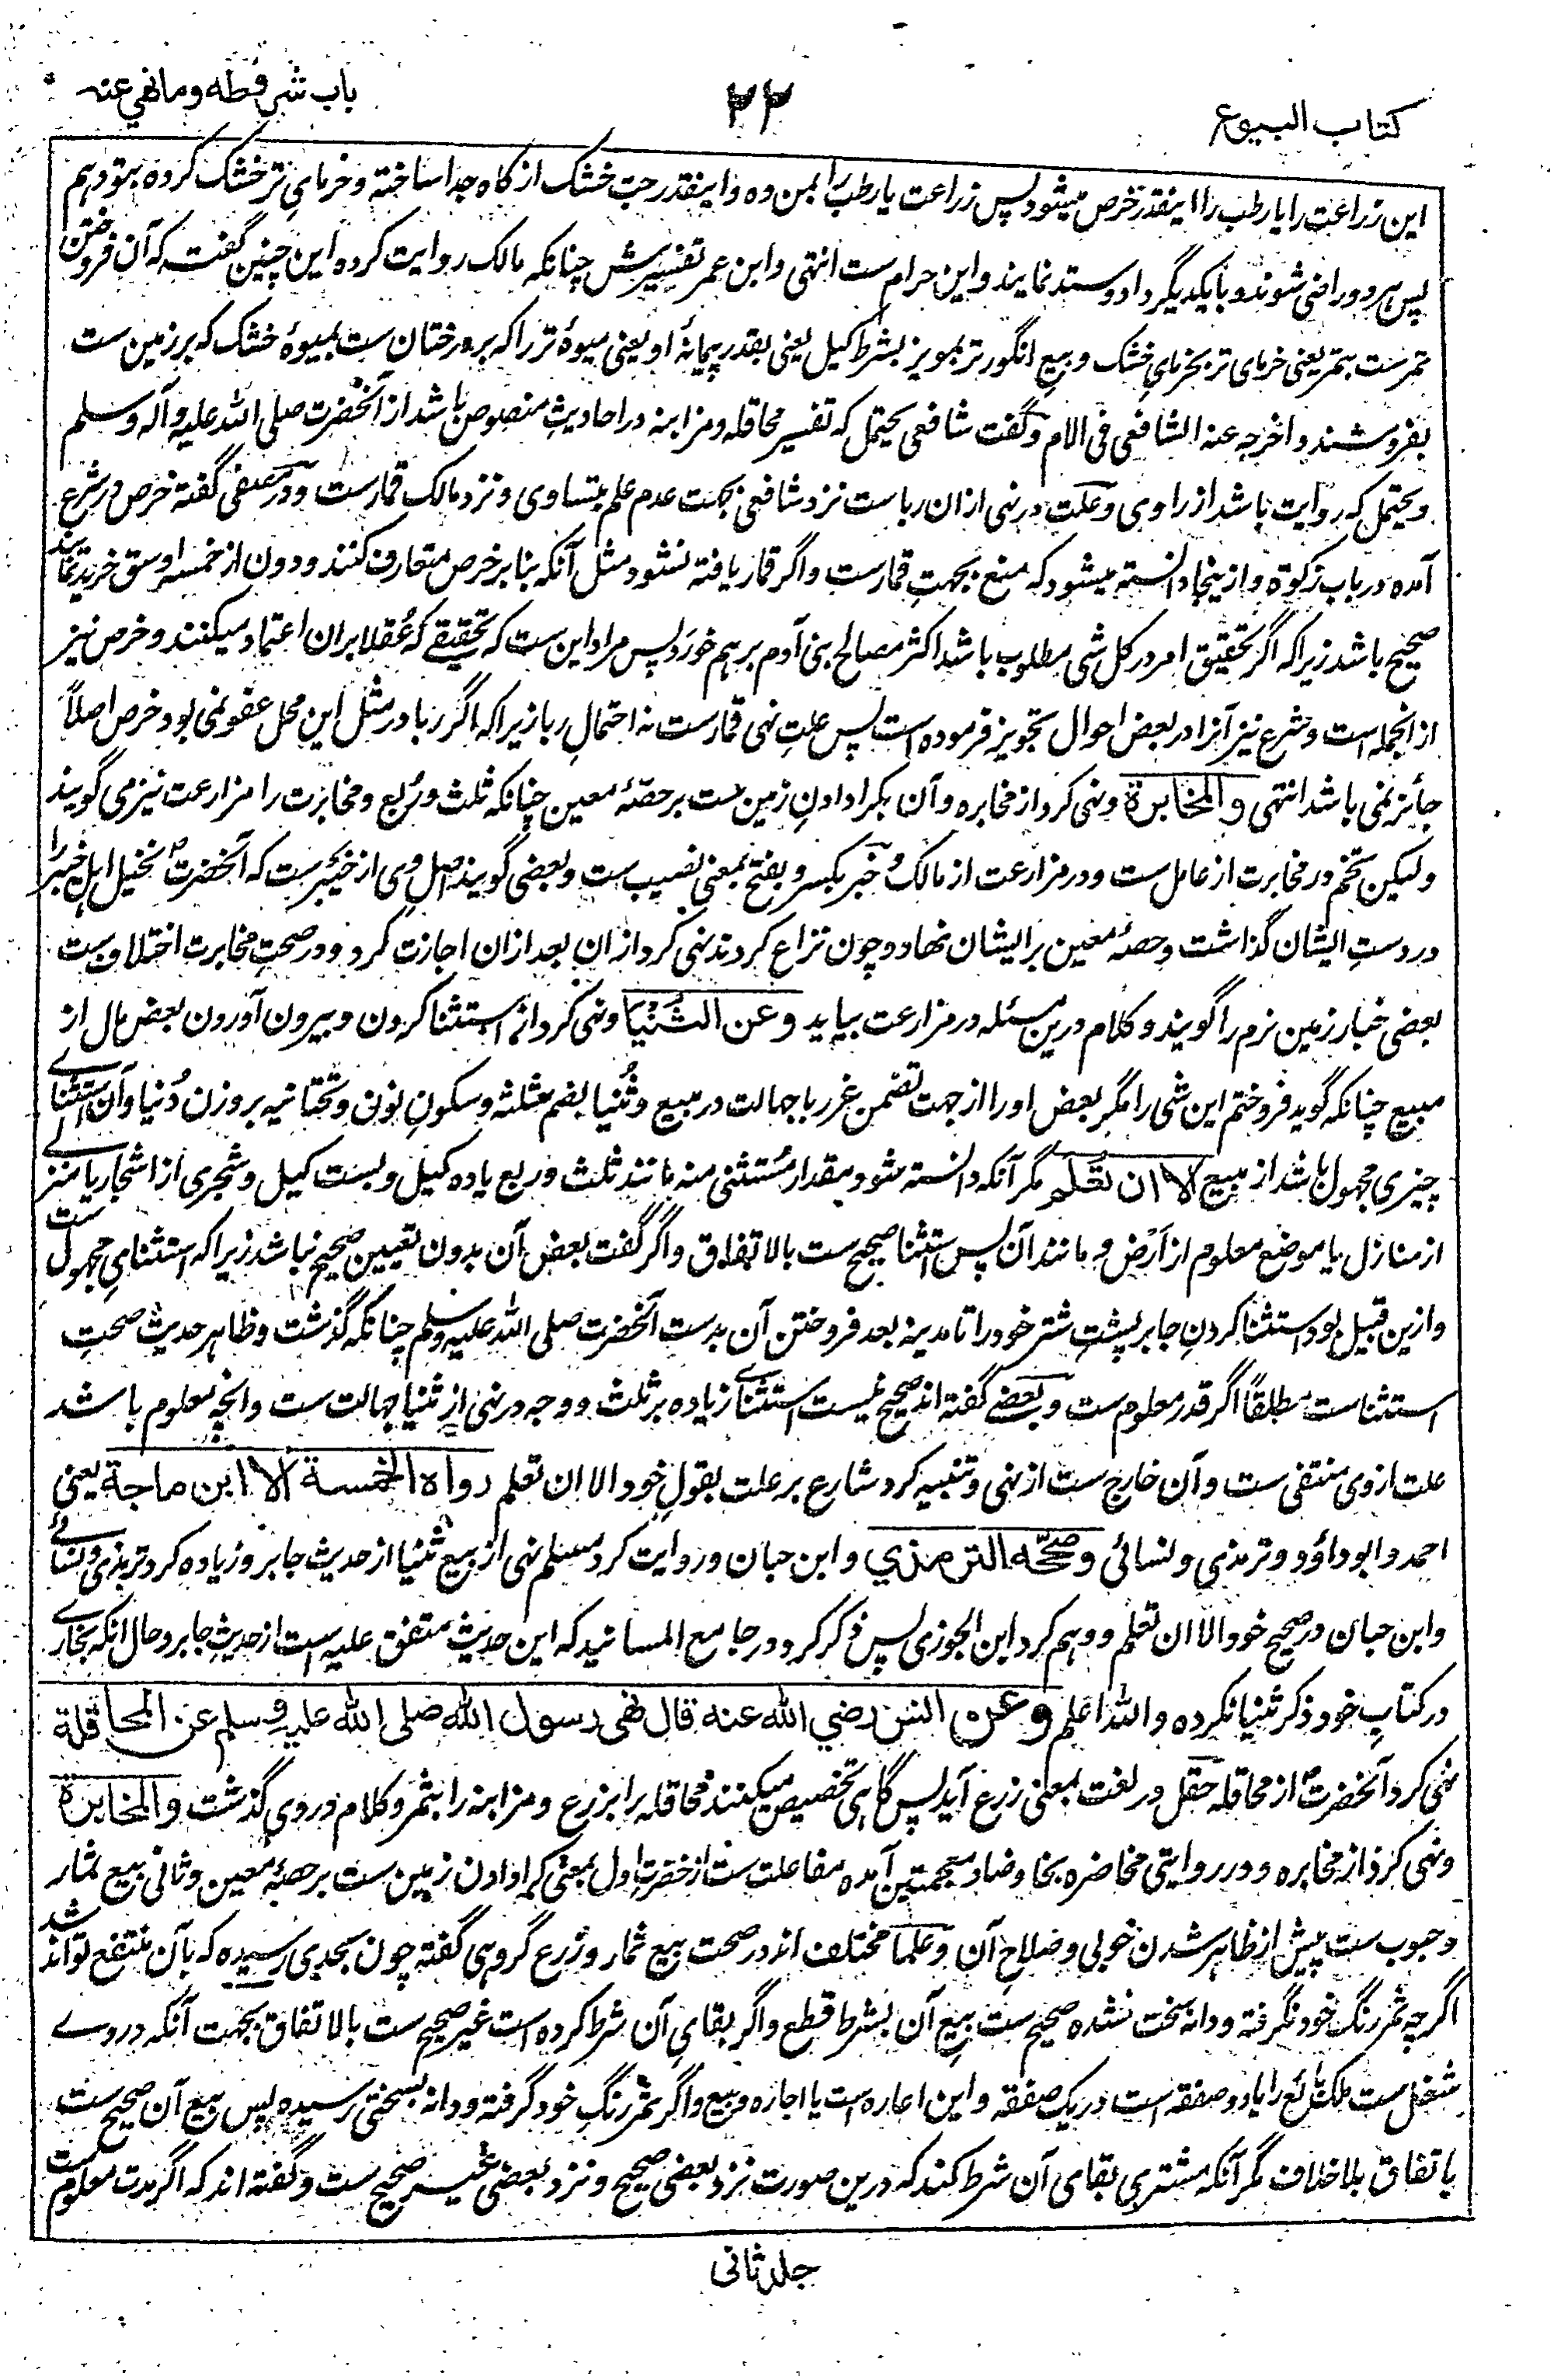 کتاب البیوع
۲۲
باب شروطه وما نهي عنه
این زراعت را یا رطب را اینقدر خرص میشود پس زراعت یا رطب را بمن ده و اینقدر حب خشک از کاه جدا ساخته و خرمای تر خشک کرده بتو دهم
پس هر دو راضی شوند و با یکدیگر داد و ستد نمایند و این حرام ست انتهی و ابن عمر تفسیرش چنانکه مالک روایت کرده این چنین گفت که آن فروختن
تمر ست بتمر یعنی خرمای تر بخرمای خشک و بیع انگور تر بمویز بشرط کیل یعنی بقدر پیمانۂ او یعنی میوۂ تر را که بر درختان ست بمیوۂ خشک که بر زمین ست
بفروشند و اخرجه عنه الشافعی فی الام و گفت شافعی یحتمل که تفسیر محاقله و مزابنه در احادیث منصوص باشد از آنحضرت صلی الله علیه و آله وسلم
و یحتمل که روایت باشد از راوی و علت در نهی ازان ربا ست نزد شافعی بجهت عدم علم بتساوی و نزد مالک قمار ست و در مصفی گفته خرص در شرع
آمده در باب زکوة و ازینجا دانسته میشود که منع بجهت قمار ست و اگر قمار یافته نشود مثل آنکه بنا بر خرص متعارف کنند و دون از خمسه اوسق خرید نمایند
صحیح باشد زیرا که اگر تحقیق امر در کل شی مطلوب باشد اکثر مصالح بنی آدم برهم خورد پس مراد این ست که تحقیقے که عقلا بران اعتماد میکنند و خرص نیز
ازانجمله است و شرع نیز آنرا در بعض احوال تجویز فرموده است پس علت نهی قمار ست نه احتمال ربا زیرا که اگر ربا در مثل این محل عفو نمی بود خرص اصلاً
جائز نمی باشد انتهی والمخابرة و نهی کرد از مخابره و آن بکرا دادن زمین ست بر حصۂ معین چنانکه ثلث و ربع و مخابرت را مزارعت نیز می گویند
ولیکن تخم در مخابرت از عامل ست و در مزارعت از مالک و خبر بکسر و بفتح بمعنی نصیب ست و بعضی گویند اصل وی از خیبر ست که آنحضرت نخیل اهل خیبر را
در دست ایشان گذاشت و حصۂ معین بر ایشان نهاد و چون نزاع کردند نهی کرد ازان بعد ازان اجازت کرد و در صحت مخابرت اختلاف ست
بعضی خبار زمین نرم را گویند و کلام درین مسئله در مزارعت بیاید وعن الثنیا و نهی کرد از استثنا کردن و بیرون آوردن بعض مال از
مبیع چنانکه گوید فروختم این شی را مگر بعض او را از جهت تضمن غرر با جهالت در مبیع و ثُنیا بضم مثلثه و سکون نون و تحتانیه بر وزن دُنیا و آن استثنائے
چیزی مجهول باشد از مبیع الا ان تعلم مگر آنکه دانسته شود مقدار مستثنی منه مانند ثلث و ربع یا ده کیل و بست کیل و شجری از اشجار یا منزلے
از منازل یا موضع معلوم از ارض و مانند آن پس استثنا صحیح ست بالاتفاق و اگر گفت بعض آن بدون تعیین صحیح نباشد زیرا که استثنای مجهول ست
و ازین قبیل بود استثنا کردن جابر پشت شتر خود را تا مدینه بعد فروختن آن بدست آنحضرت صلی الله علیه وسلم چنانکه گذشت و ظاهر حدیث صحت
استثناست مطلقاً اگر قدر معلوم ست و بعضے گفته اند صحیح نیست استثنائے زیاده بر ثلث و وجه در نهی از ثنیا جهالت ست و انچه معلوم باشد
علت ازوی منتفی ست و آن خارج ست از نهی و تنبیه کرد شارع بر علت بقول خود الا ان تعلم رواه الخمسة الا ابن ماجة یعنی
احمد و ابوداؤد و ترمذی و نسائی وصححه الترمذي و ابن حبان و روایت کرد مسلم نهی از بیع ثنیا از حدیث جابر و زیاده کرد ترمذی و نسائے
و ابن حبان در صحیح خود الا ان تعلم و وهم کرد ابن الجوزی پس ذکر کرد در جامع المسانید که این حدیث متفق علیه است از حدیث جابر و حال آنکه بخارے
در کتاب خود ذکر ثنیا نکرده والله اعلم وعن انس رضي الله عنه قال نهى رسول الله صلى الله عليه وسلم عن المحاقلة
نهی کرد آنحضرت از محاقله حقل در لغت بمعنی زرع آید پس گاهی تخصیص میکنند محاقله را بزرع و مزابنه را بثمر و کلام در وی گذشت والمخابرة
و نهی کرد از مخابره و در روایتی مخاضره بخا و ضاد معجمتین آمده مفاعلت ست از خضرت اول بمعنی کرا دادن زمین ست بر حصۂ معین و ثانی بیع ثمار
و حبوب ست پیش از ظاهر شدن خوبی و صلاح آن و علما مختلف اند در صحت بیع ثمار و زرع گروهی گفته چون بحدی رسیده که بآن منتفع تواند شد
اگرچه ثمر رنگ خود نگرفته و دانه سخت نشده صحیح ست بیع آن بشرط قطع و اگر بقای آن شرط کرده است غیر صحیح ست بالاتفاق بجهت آنکه دروے
شغل ست ملک بائع را یا دو صفقه است در یک صفقه و این اعاره است یا اجاره و بیع و اگر ثمر رنگ خود گرفته و دانه بسختی رسیده پس بیع آن صحیح ست
باتفاق بلا خلاف مگر آنکه مشتری بقای آن شرط کند که درین صورت نزد بعضی صحیح و نزد بعضی غیر صحیح ست و گفته اند که اگر مدت معلوم ست
جلد ثانی